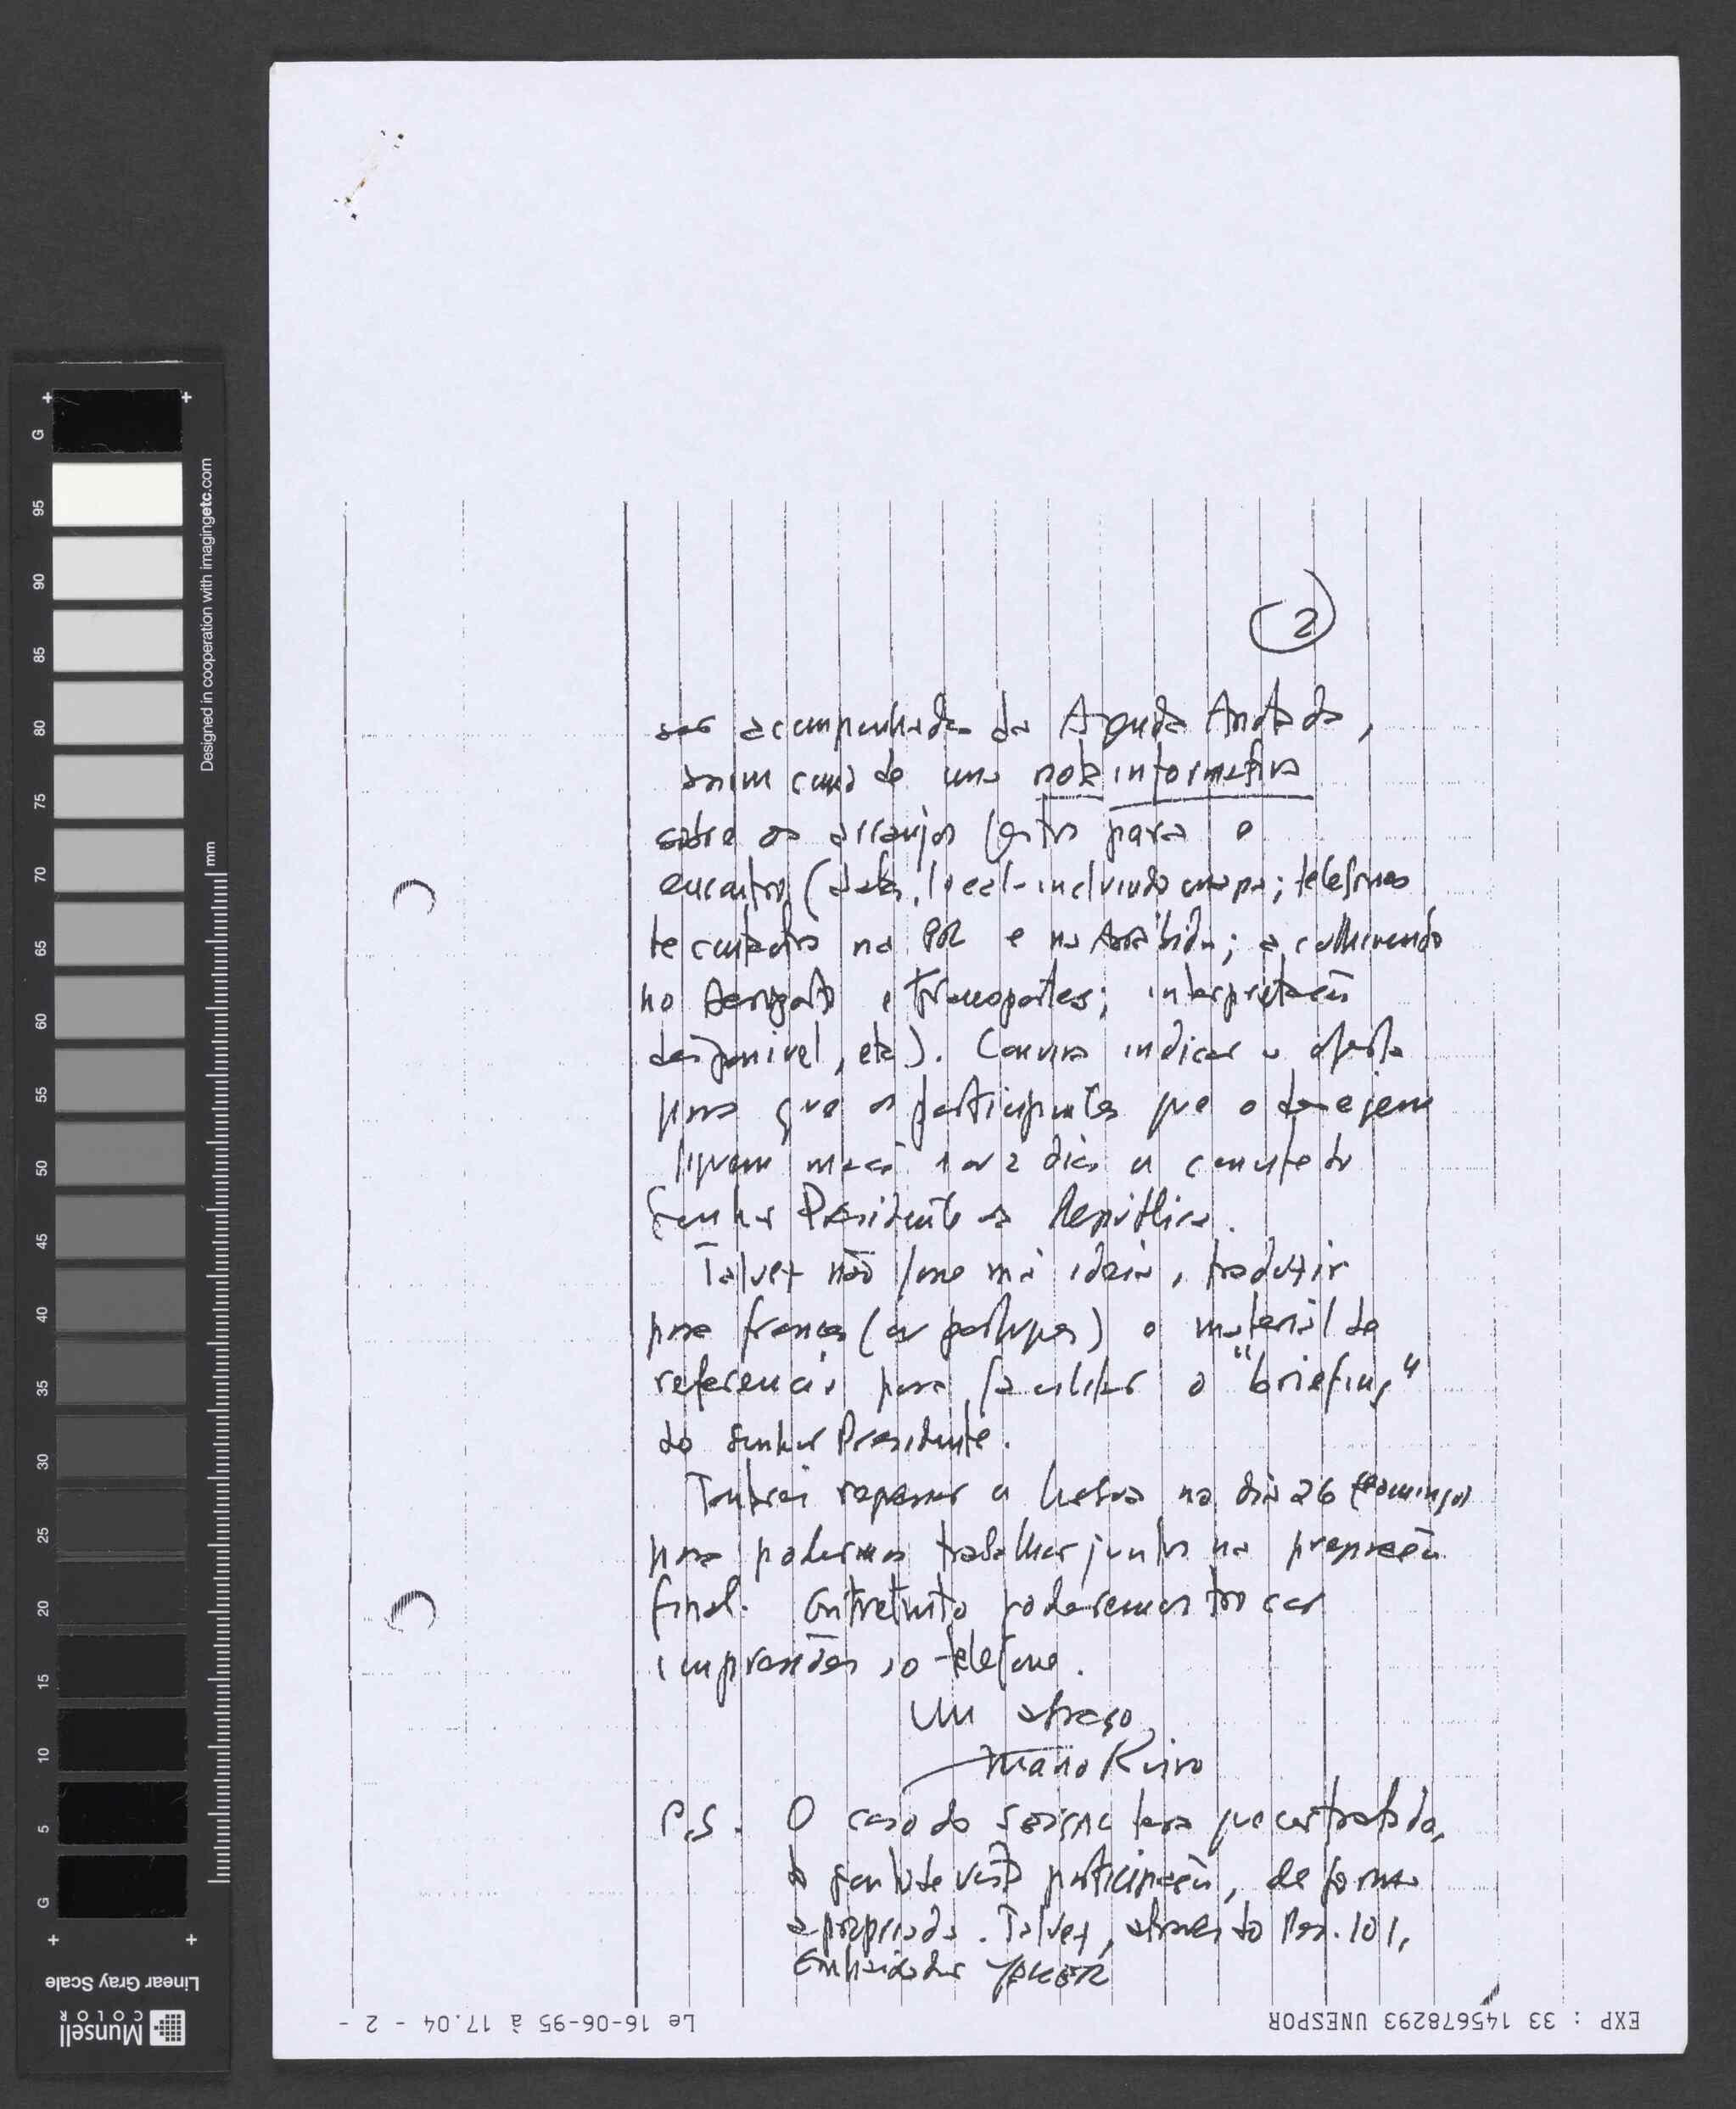 (2)
ser acompanhada da Agenda Anotada,
assim como de uma nota informativa
sobre os arranjos feitos para o
encontro (datas, local - incluindo mapa; telefones
de contacto na PR e na Arrábida; acolhimento
no Aeroporto e transportes; interpretação
disponivel, etc). Convirá indicar a oferta
para que os participantes que o desejem
fiquem mais 1 ou 2 dias a convite do
Senhor Presidente da República.
Talvez não fosse má ideia, traduzir
para francês (ou português) o material de
referência para facilitar o "briefing"
do Senhor Presidente.
Tentarei regressar a Lisboa no dia 26 (domingo)
para podermos trabalhar juntos na preparação
final. Entretanto poderemos trocar
impressões ao telefone.
Um abraço,
Mário Ruivo
P.S. O caso do tera que ser tratado,
participação, de forma
apropriada. Talvez, através do
Embaixador
EXP : 33 145678293 UNESPOR
Le 16-06-95 à 17.04 - 2 -
G
95
90
85
80
75
70
65
60
55
50
45
40
35
30
25
20
15
10
5
G
mm
Designed in cooperation with imagingetc.com
Linear Gray Scale
Munsell
COLOR